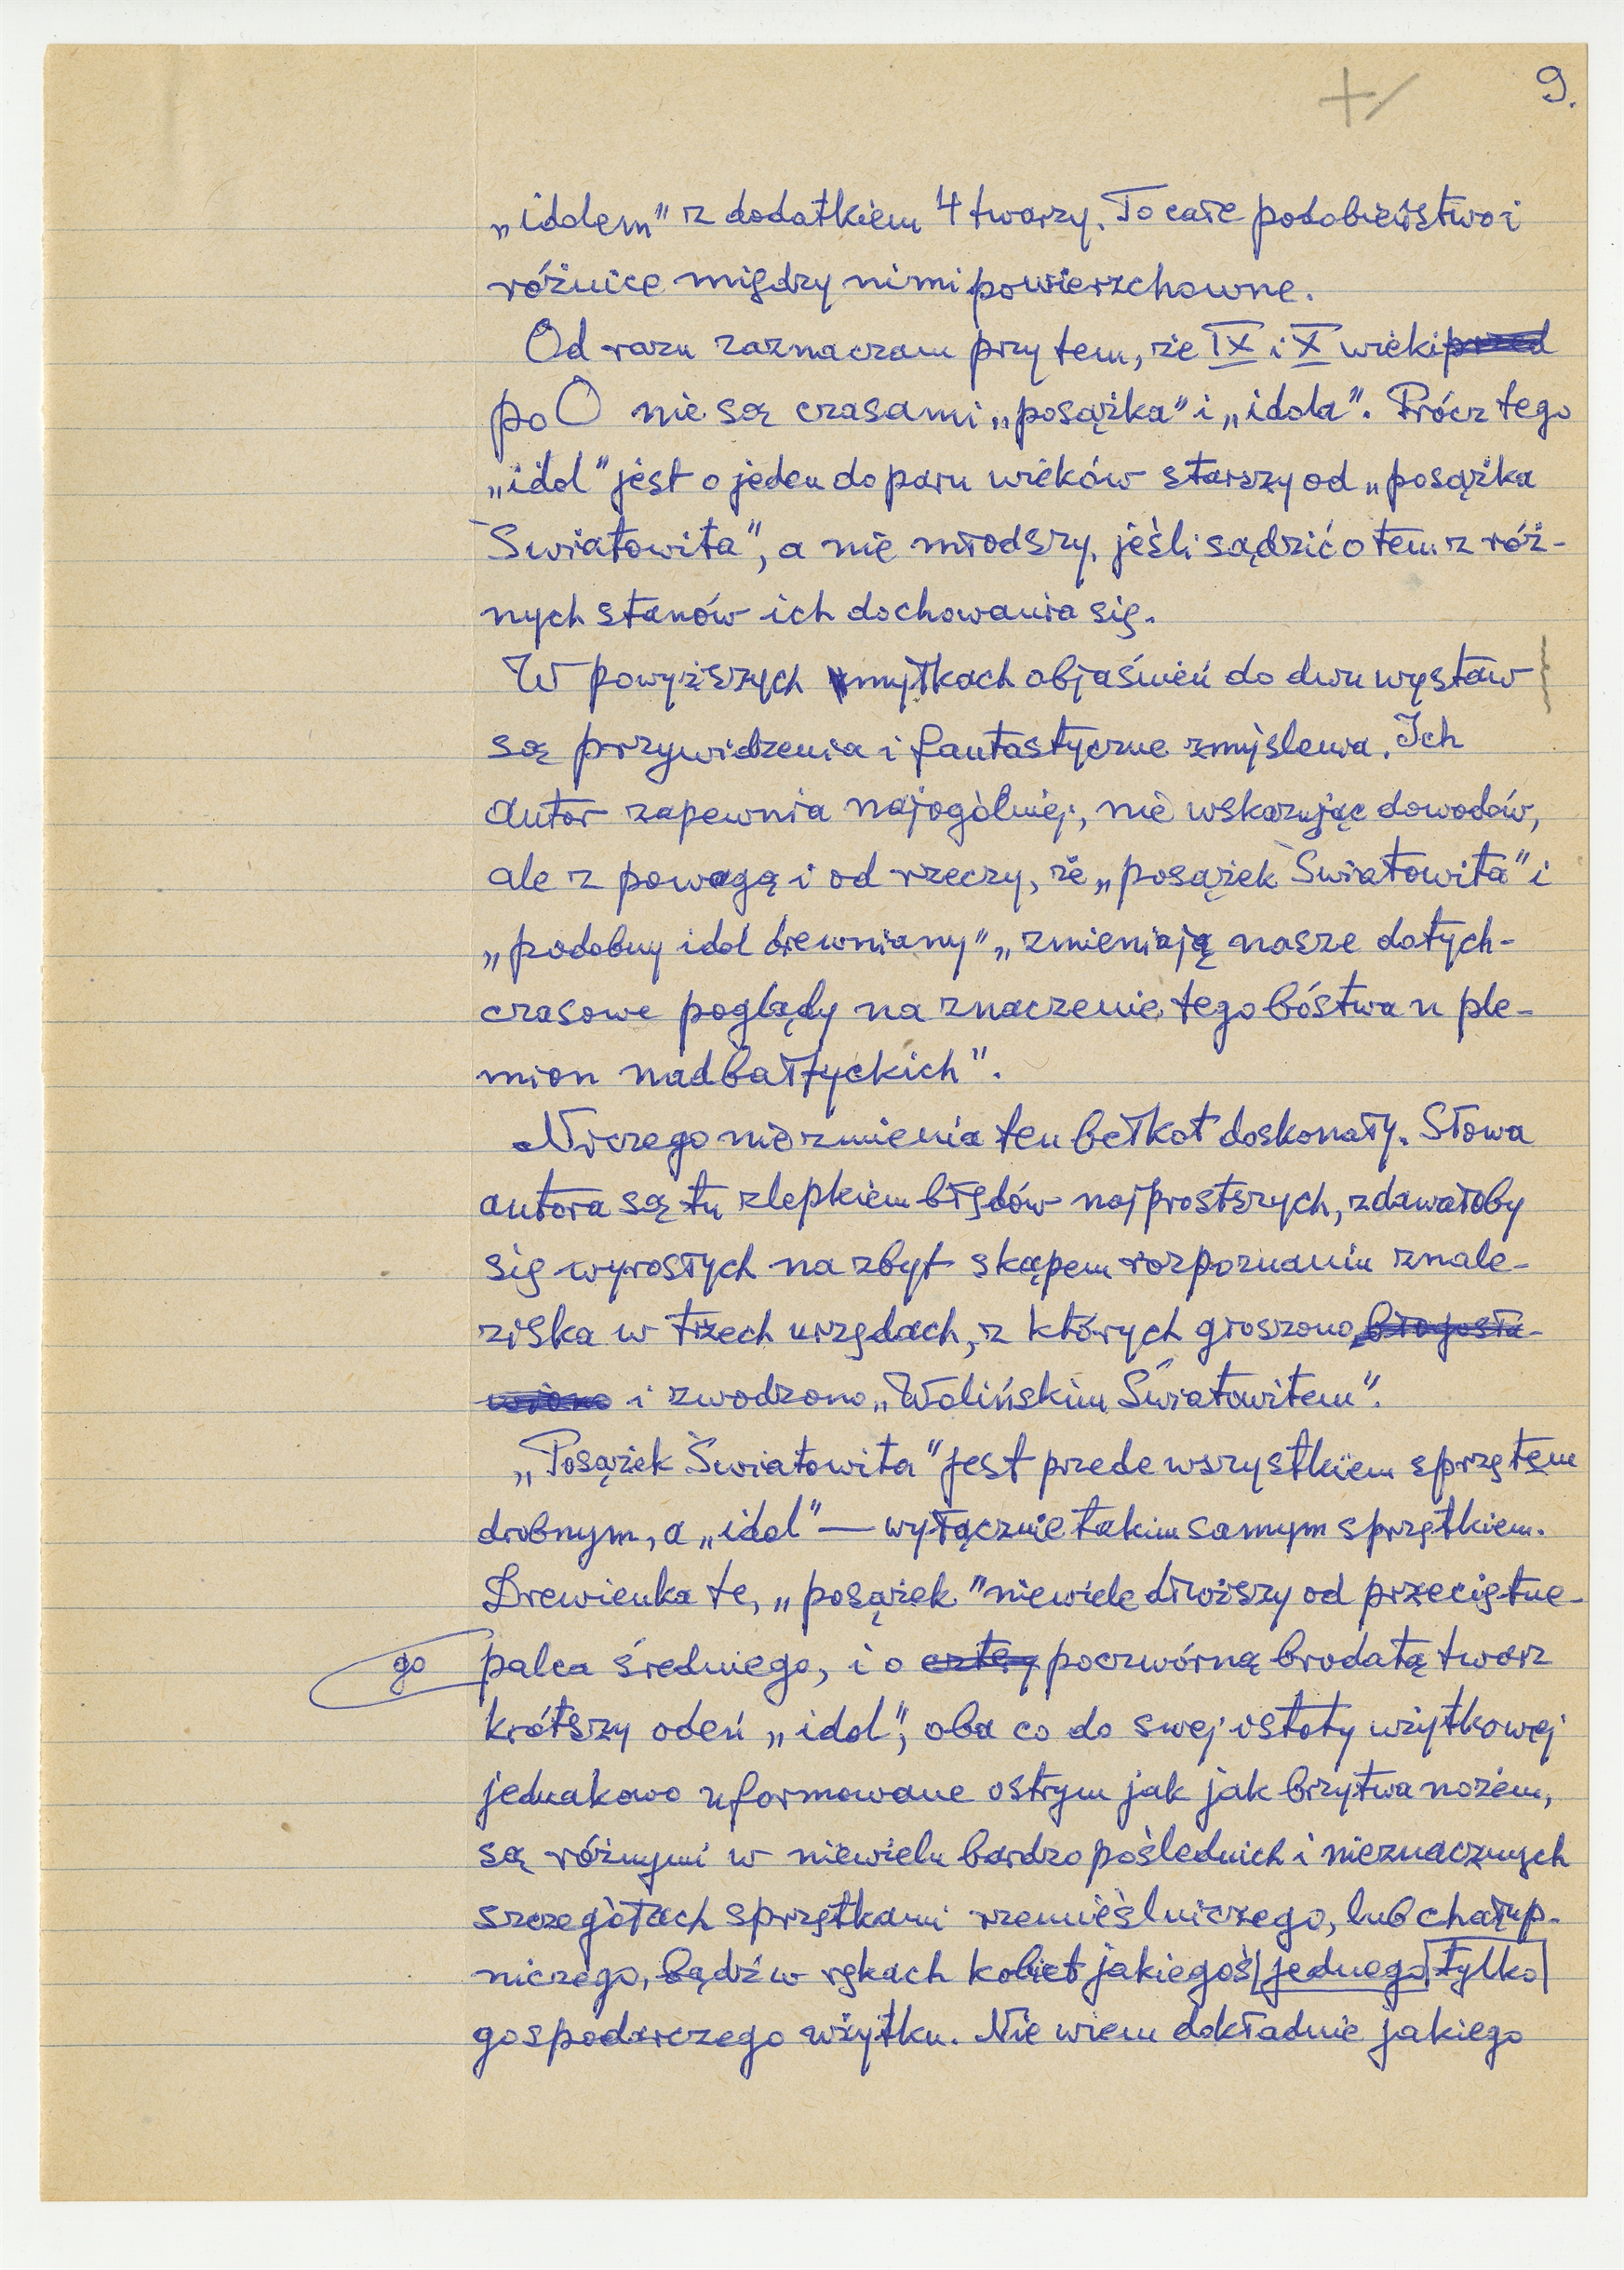 9.
„idolem” z dodatkiem 4 twarzy. To całe podobieństwo i
różnice między nimi powierzchowne.
Od razu zaznaczam przytem, że IX i X wieki przed
po O nie są czasami „posążka” i „idola”. Prócz tego
„idol” jest o jeden do paru wieków starszy od „posążka
Światowita”, a nie młodszy, jeśli sądzić o tem z róż-
nych stanów ich dochowania się.
W powyższych zmyłkach objaśnień do dwu wystaw
są przywidzenia i fantastyczne zmyślenia. Ich
autor zapewnia najogólniej, nie wskazując dowodów,
ale z powagą i od rzeczy, że „posążek Światowita” i
„podobny idol drewniany” „zmieniają nasze dotych-
czasowe poglądy na znaczenie tego bóstwa u ple-
mion nadbałtyckich”.
Niczego nie zmienia ten bełkot doskonały. Słowa
autora są tu zlepkiem błędów najprostszych, zdawałoby
się wyrosłych na zbyt skąpem rozpoznaniu znale-
ziska w trzech urzędach, z których groszono błogosła-
wiono i zwodzono „Wolińskim Światowitem”.
„Posążek Światowita” jest przede wszystkiem sprzętem
drobnym, a „idol” — wyłącznie takim samym sprzętkiem.
Drewienka te, „posążek” niewiele dłuższy od przeciętne-
go palca średniego, i o cztery poczwórną brodatą twarz
krótszy odeń „idol”, oba co do swej istoty użytkowej
jednakowo uformowane ostrym jak jak brzytwa nożem,
są różnymi w niewielu bardzo poślednich i nieznacznych
szczegółach sprzętkami rzemieślniczego, lub chałup-
niczego, bądź w rękach kobiet jakiegoś jednego tylko
gospodarczego użytku. Nie wiem dokładnie jakiego